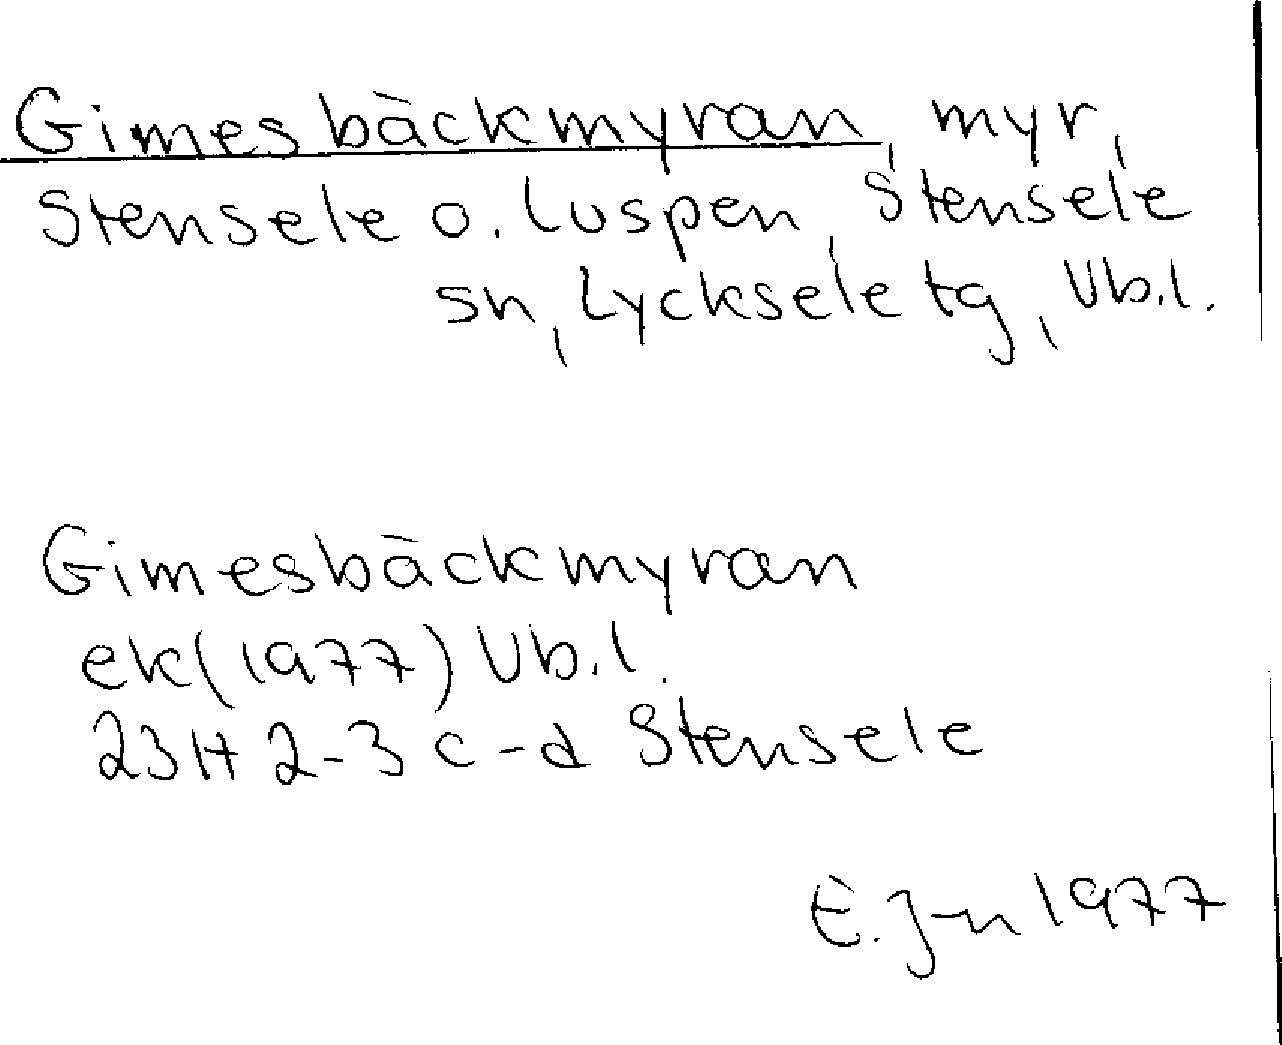 Gimesbäckmyran, myr,
Stensele o. Luspen, Stensele
sn, Lycksele tg, Vb.l.
Gimesbäckmyran
ek (1977) Vb.l.
23H 2-3 c-d Stensele
E. J-n 1977